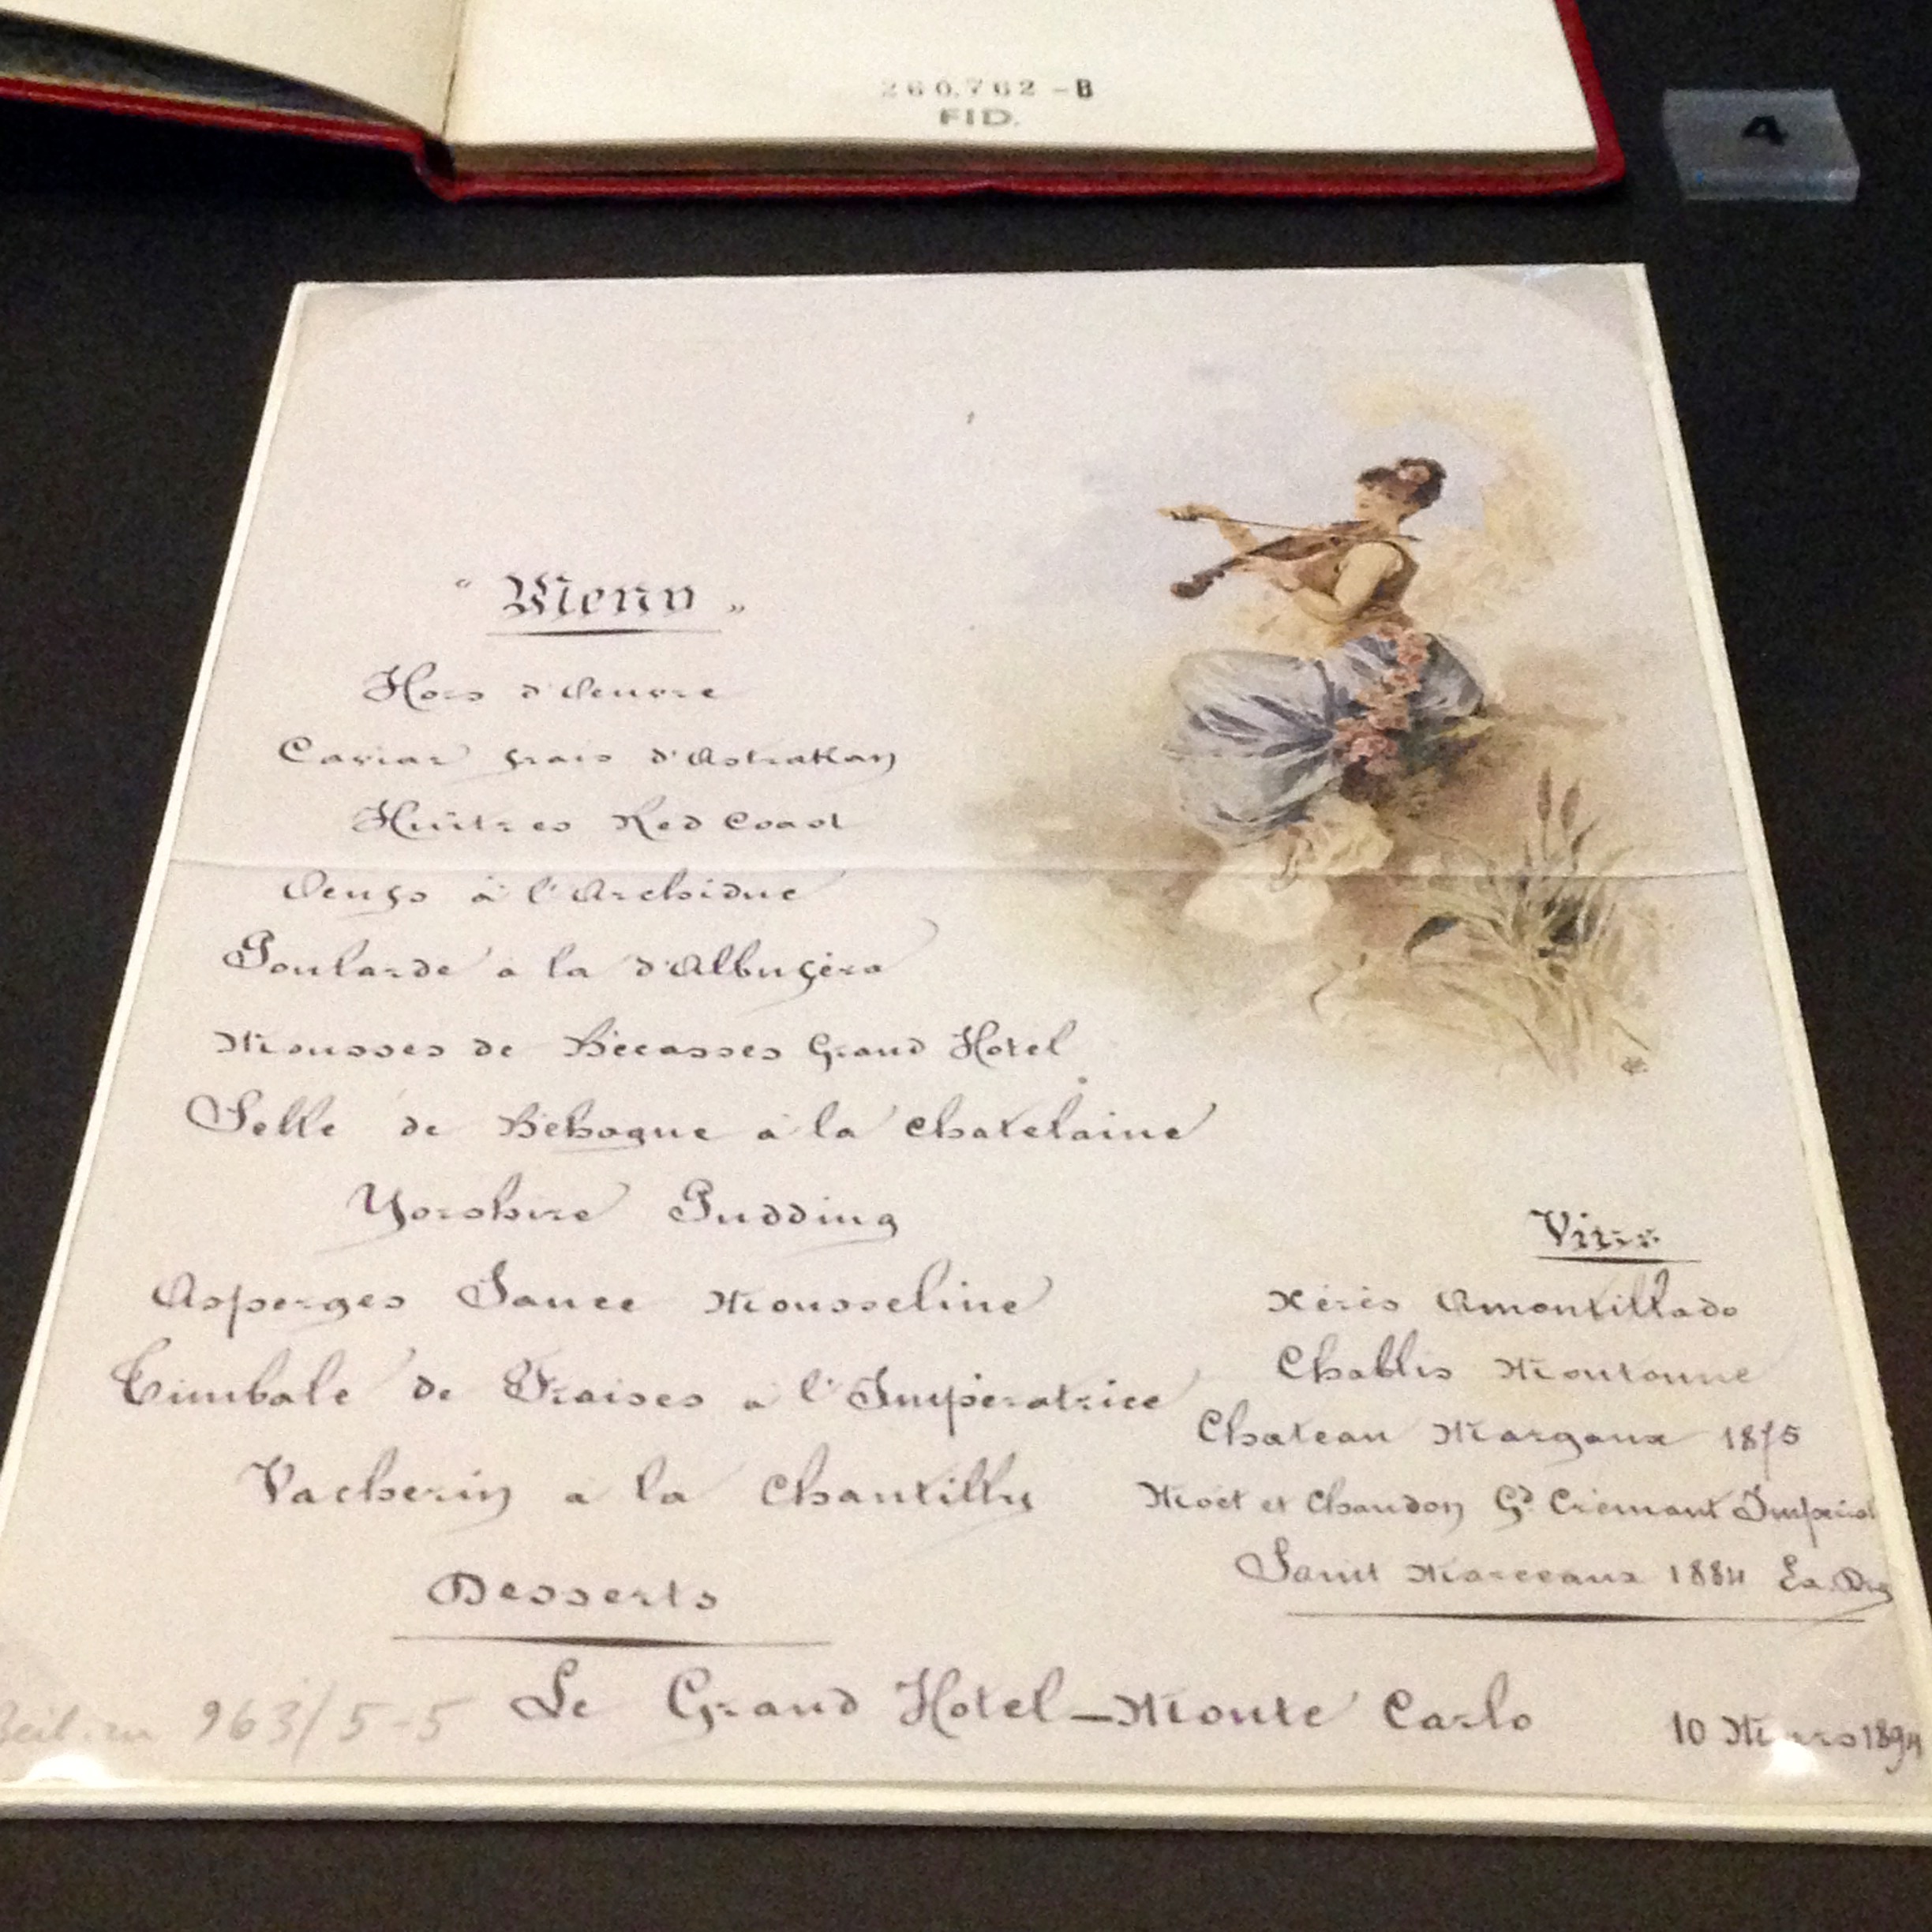 260.762-B
FID.
4
"Menu"
Hors d'Oeuvre
Caviar frais d'Astrakan
Huîtres Red Coast
Oeufs à l'Archiduc
Poularde à la d'Albuféra
Mousses de Bécasses Grand Hotel
Selle de Béhague à la chatelaine
Yorshire Pudding
Asperges Sauce Mousseline
Timbale de Fraises a l'Impératrice
Vacherin a la Chantilly
Desserts
Vins
Xérès Amontillado
Chablis Moutonne
Chateau Margaux 1875
Moët et Chandon Gd Crémant Impérial
Saint Marceaux 1884
Le Grand Hotel - Monte Carlo
10 Mars 1894
963/5-5